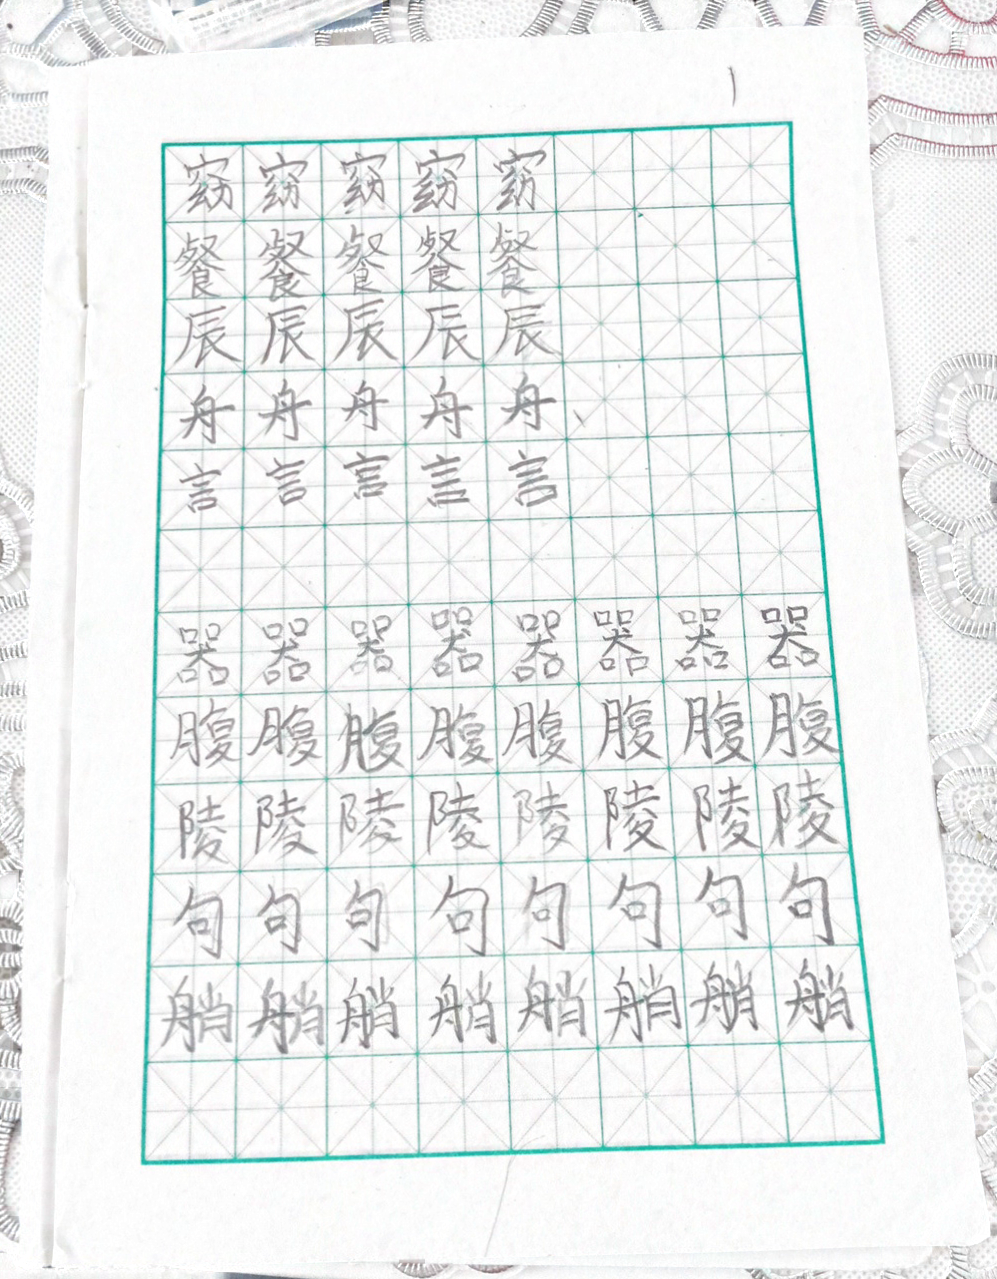 窈窈窈窈窈
餐餐餐餐餐
辰辰辰辰辰
舟舟舟舟舟
言言言言言
器器器器器器器器
腹腹腹腹腹腹腹腹
陵陵陵陵陵陵陵陵
句句句句句句句句
艄艄艄艄艄艄艄艄